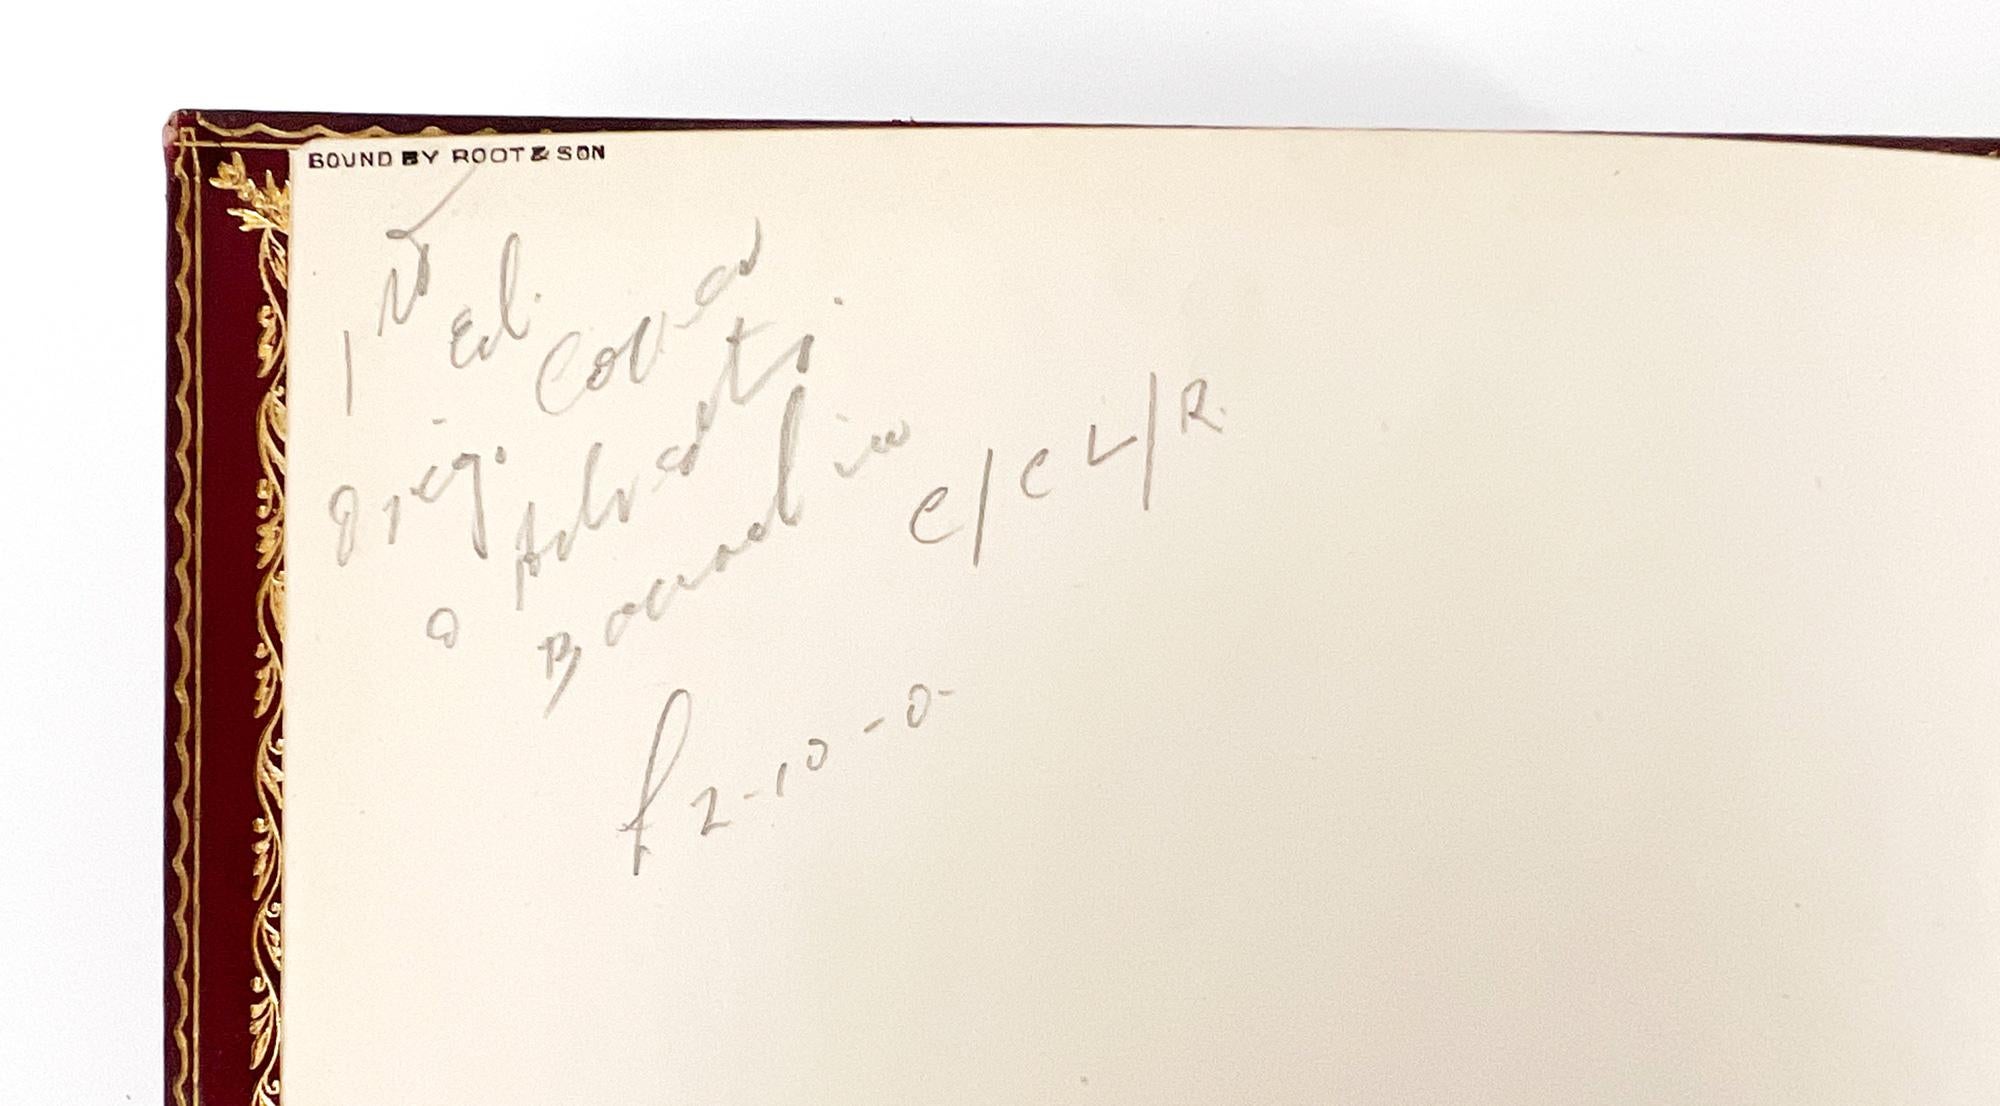 BOUND BY ROOT & SON
1st Ed.
Orig. Cover
& Adverts.
Bound in
C/CL/R.
£2-10-0-